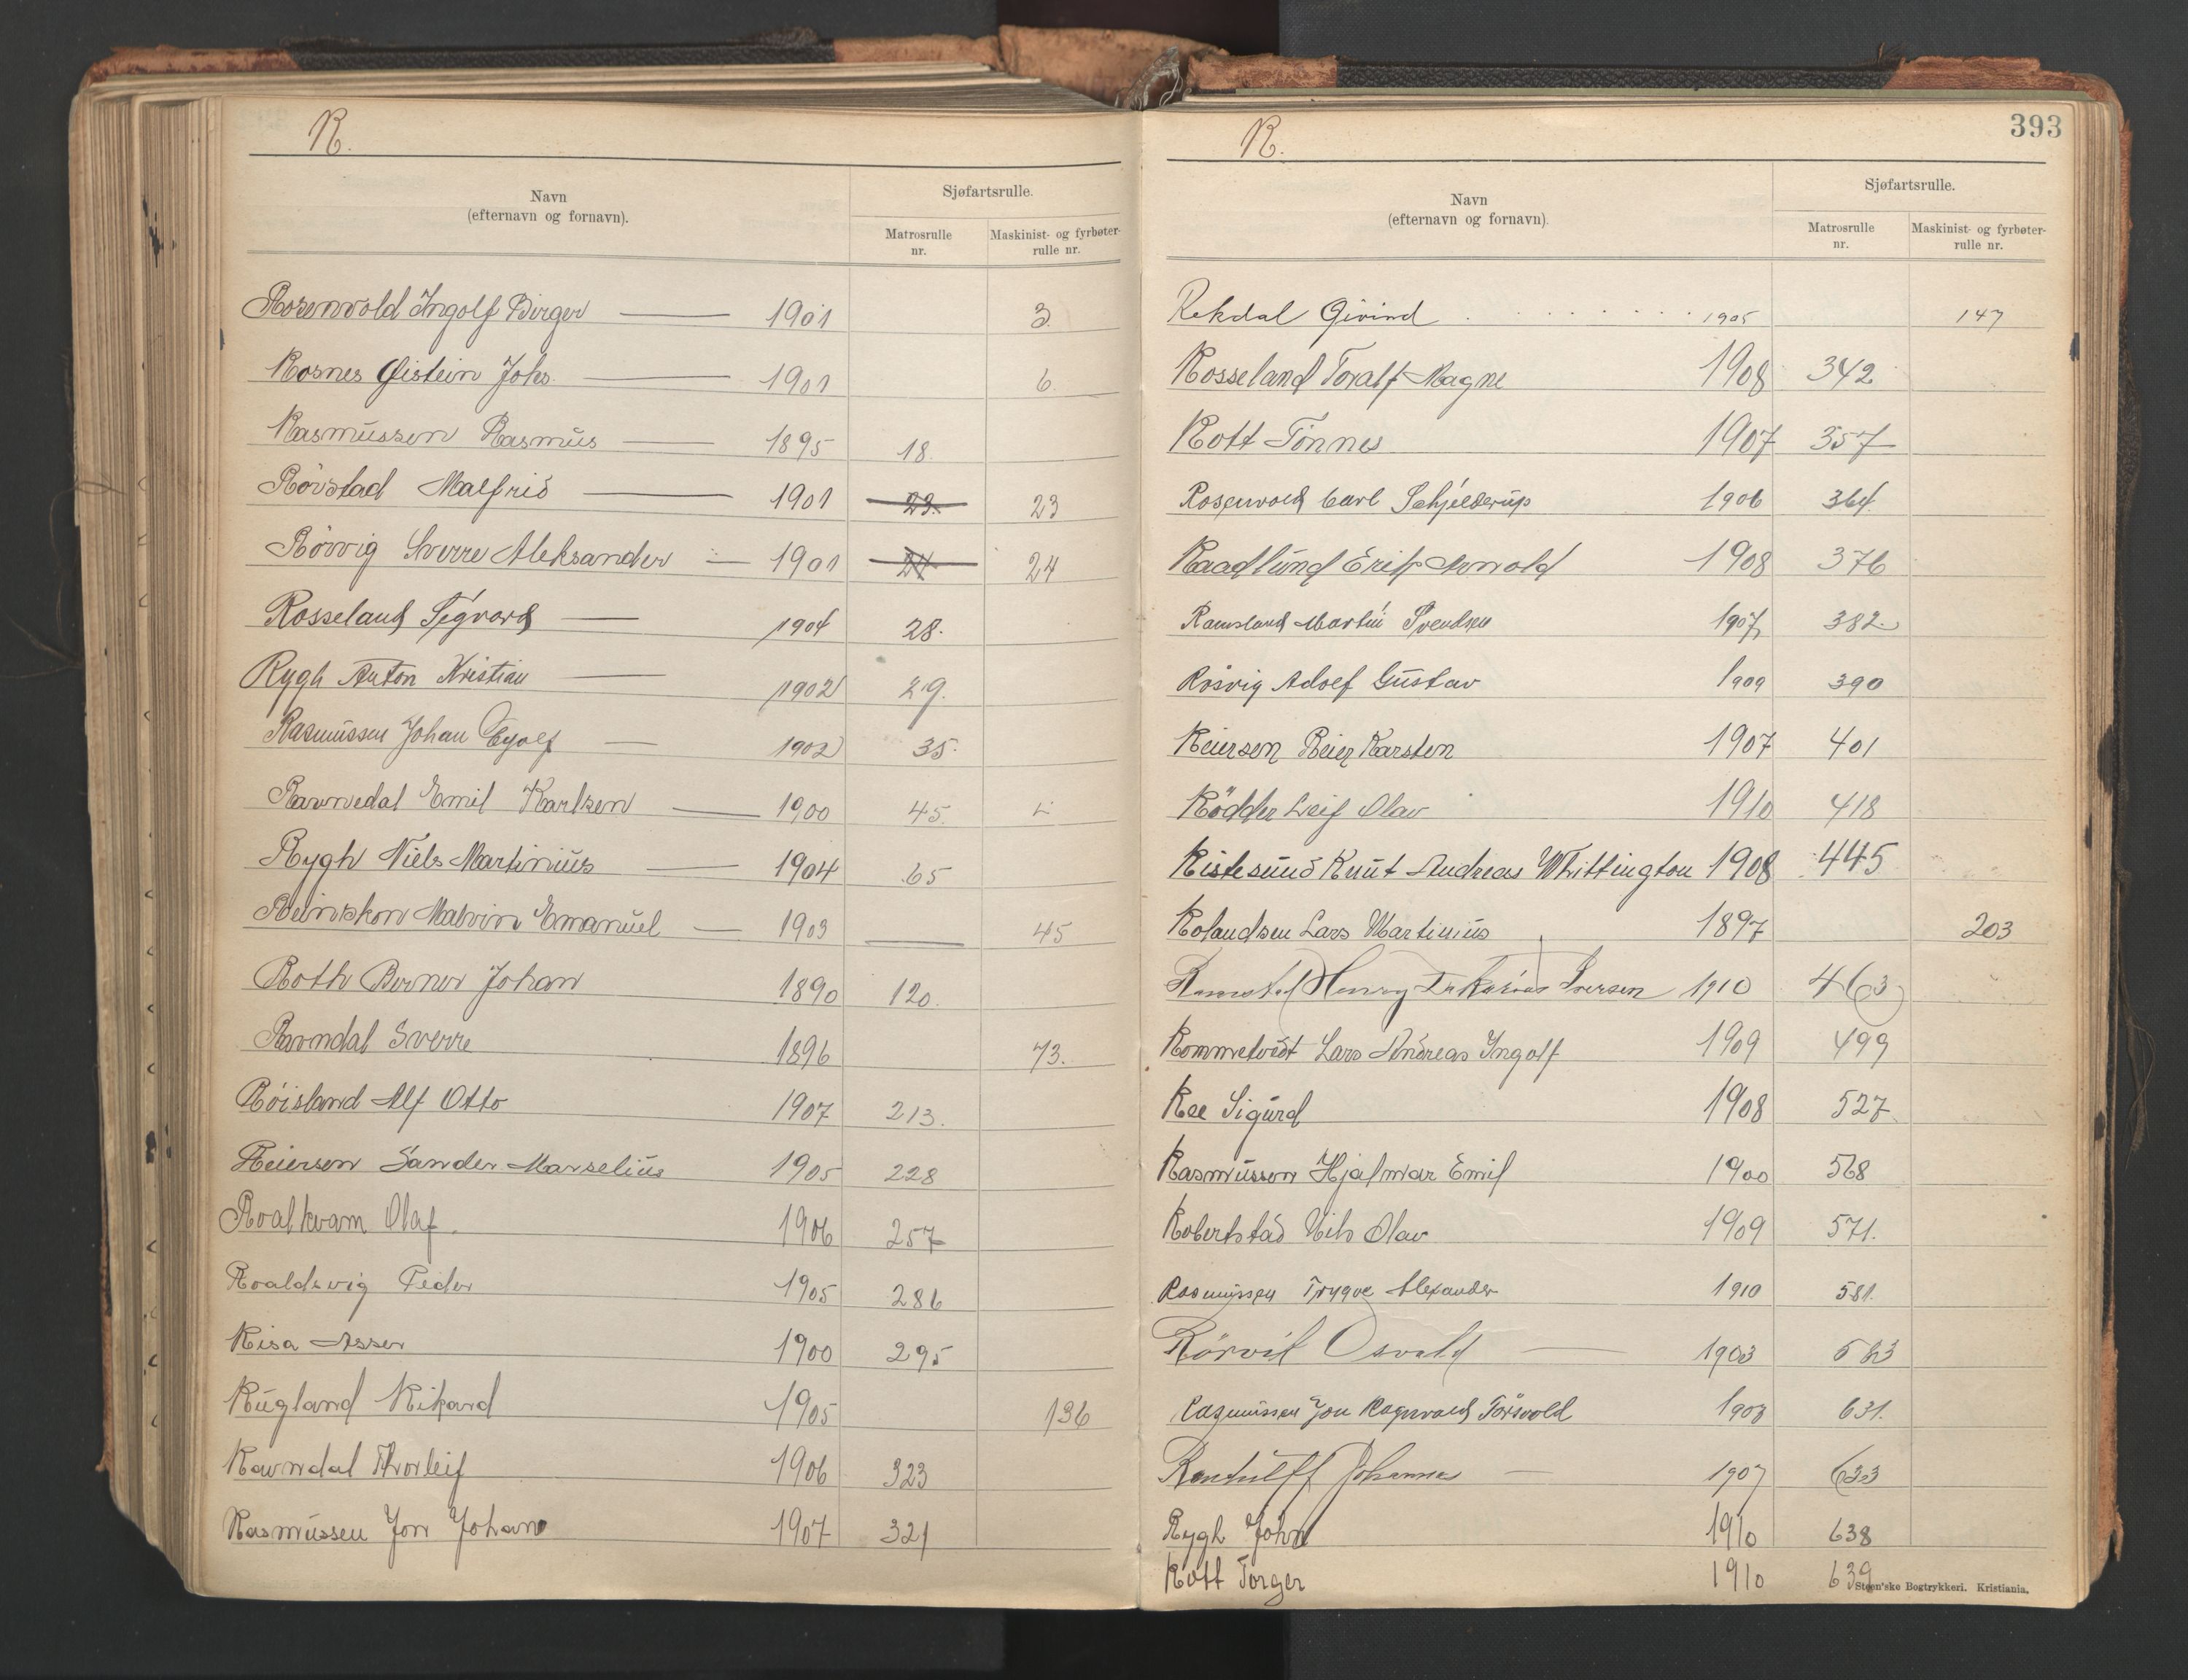 R.
Navn
(efternavn og fornavn).
Sjøfartsrulle.
Matrosrulle
nr.
Maskinist- og fyrbøter-
rulle nr.
Rosenvold Ingolf Birger 1901 3
Rosnes Øistein Johs. 1901 6.
Rasmussen Rasmus 1895 18.
Rövstad Malfrid 1901 23. 23
Rörvig Sverre Aleksander 1901 24 24
Rosseland Sigvard 1904 28.
Rygh Anton Kristian 1902 29.
Rasmussen Johan Eyolf 1902 35.
Ravnedal Emil Karlsen 1900 45.
Rygh Niels Martinius 1904 65
Malvin Emanuel 1903 45
Roth Berner Johan 1890 120.
Ravndal Sverre 1896 73.
Röisland Alf Otto 1907 213.
Reiersen Sander Marselius 1905 228
Roalkvam Olaf. 1906 257
Roaldsvig Peder 1905 286
Risa Asser 1900 295
Rugland Rikard 1905 136
Ravndal Thorleif 1906 323
Rasmussen Jon Johan 1907 321
R.
393
Navn
(efternavn og fornavn).
Sjøfartsrulle.
Matrosrulle
nr.
Maskinist- og fyrbøter-
rulle nr.
Rekdal Öivind . . . . . . . . 1905 147
Rosseland Toralf Magne 1908 342
Rott Tönnes 1907 357
Rosenvold Carl Schjelderup 1906 364
Raadlund Erik Arnold 1908 376
Ramsland Martin Svendsen 1907 382.
Rösvig Adolf Gustav 1909 390
Reiersen Reier Karsten 1907 401
Rödder Leif Olav 1910 418
Ristesund Knut Andreas Whittington 1908 445
Rolandsen Lars Martinius 1897 203
Henry Iversen 1910 463
Rommetvedt Lars Andreas Ingolf 1909 499
Ree Sigurd 1908 527
Rasmussen Hjalmar Emil 1900 568
Robertstad Nils Olav 1909 571.
Rasmussen Trygve Alexander 1910 581.
Rörvik Osvald 1903 583
Rasmussen Jon Ragnvald Torsvold 1908 631.
Johannes 1907 633
Rygh John 1910 638
Rott Torger 1910 639
Steen'ske Bogtrykkeri. Kristiania.